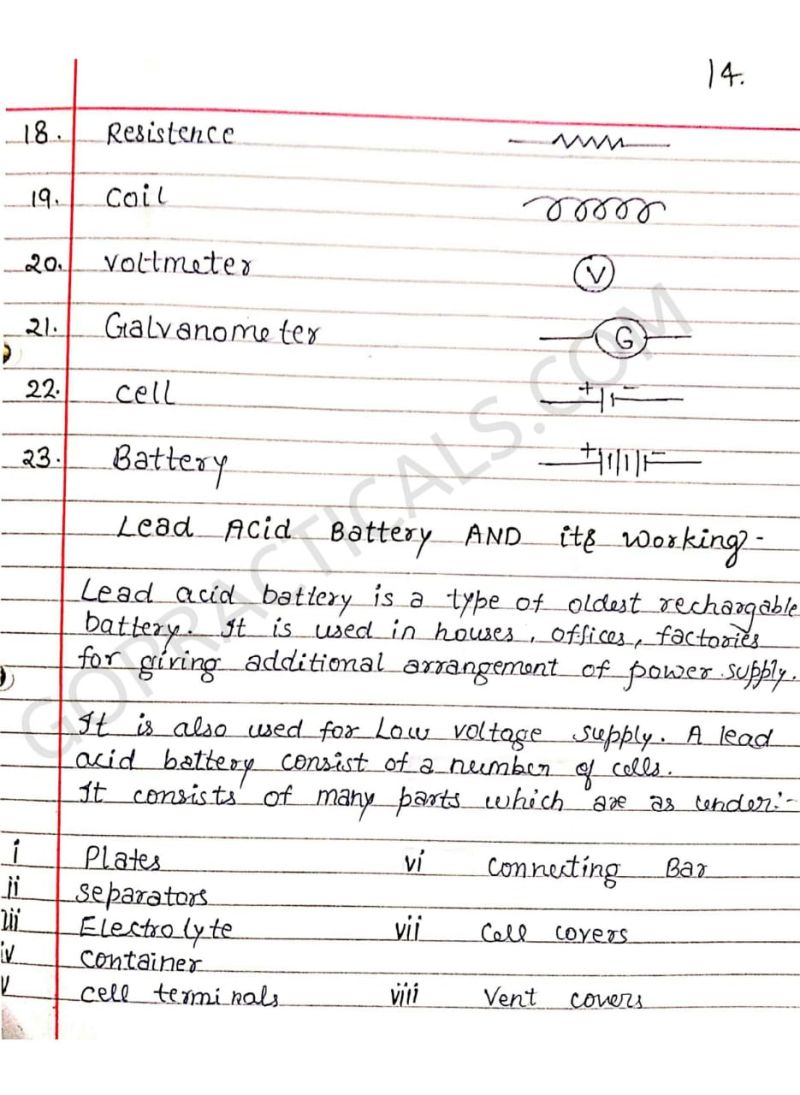 14.
18. Resistence
19. Coil
20. Voltmeter
V
21. Galvanometer
G
22. cell
+ -
23. Battery
+ -
Lead Acid Battery AND its working:-
Lead acid battery is a type of oldest rechargable
battery. It is used in houses, offices, factories
for giving additional arrangement of power supply.
It is also used for Low voltage supply. A lead
acid battery consist of a number of cells.
It consists of many parts which are as under:-
i Plates vi Connecting Bar
ii separators
iii Electrolyte vii Cell covers
iv container
v cell terminals viii Vent covers
GOPRACTICALS.COM